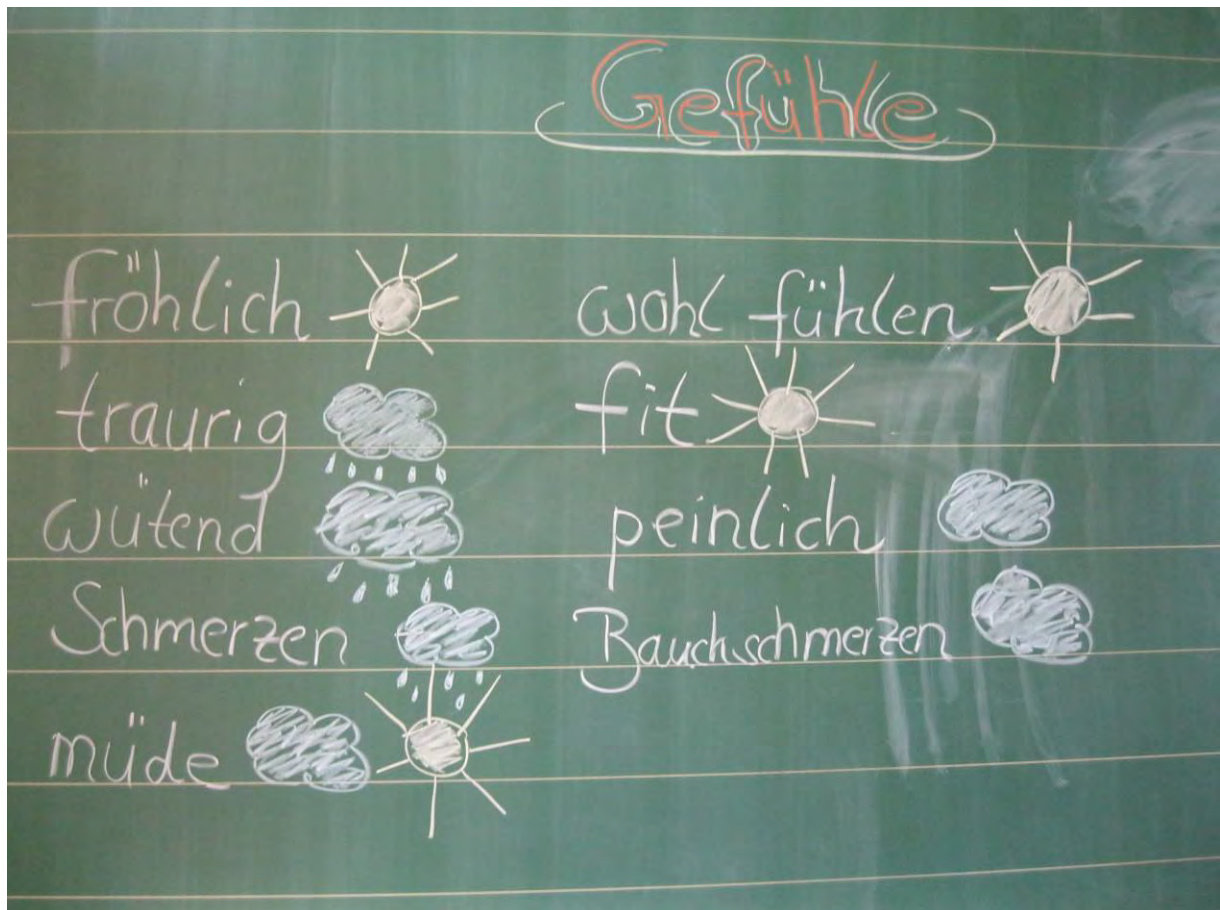 Gefühle
fröhlich
traurig
wütend
Schmerzen
müde
wohl fühlen
fit
peinlich
Bauchschmerzen